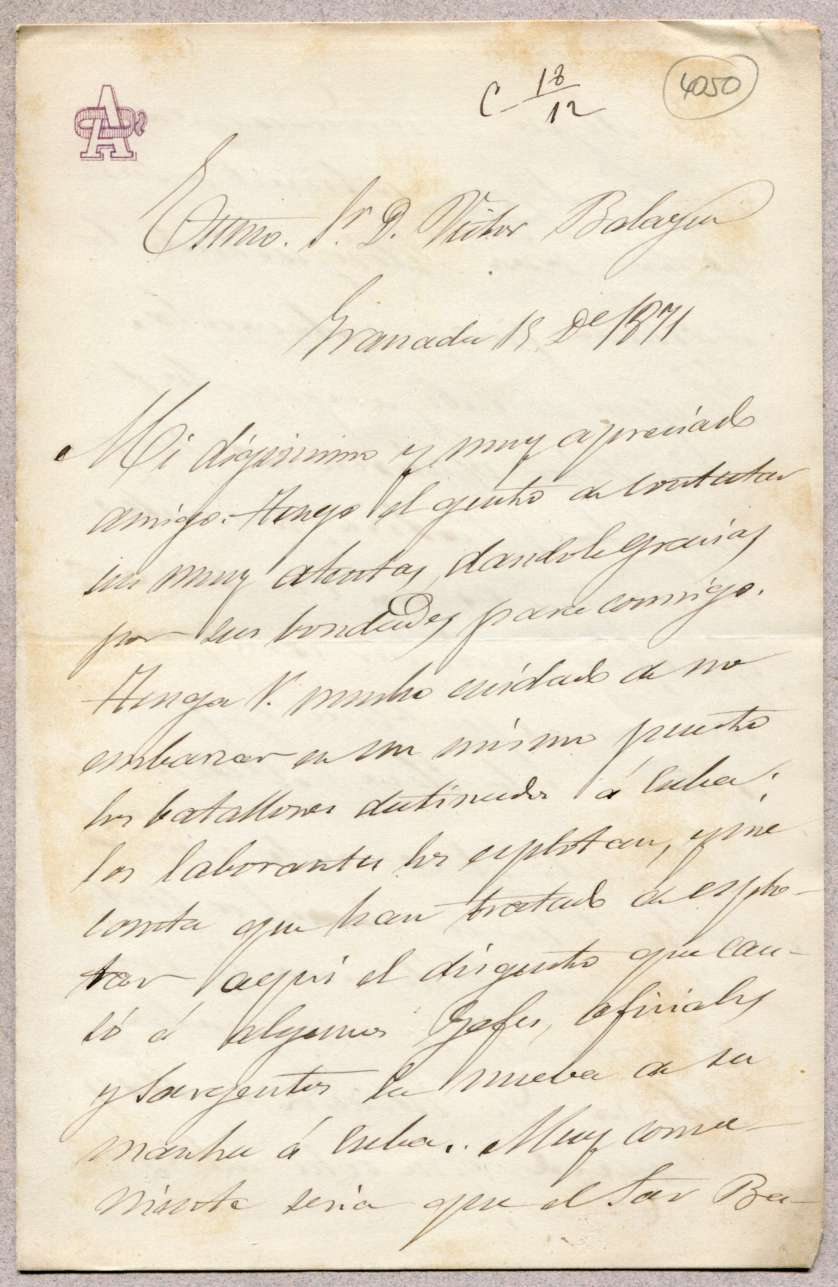 C 18/12
4050
Exmo. Sr. D. Victor Balaguer
Granada 15 De 1871
Mi dignisimo y muy apreciado
amigo. Tengo el gusto de contestar
sus muy atentas, dandole gracias
por sus bondades para conmigo.
Tenga V. mucho cuidado de no
embarcar en un mismo puerto
los batallones destinados á Cuba;
los laborantes los esplotan, y me
consta que han tratado de esplo-
tar aqui el disgusto que cau-
só á algunos Gefes, oficiales
y Sargentos la nueva de su
marcha á Cuba.. Muy conve-
niente seria que el Sor Ba-